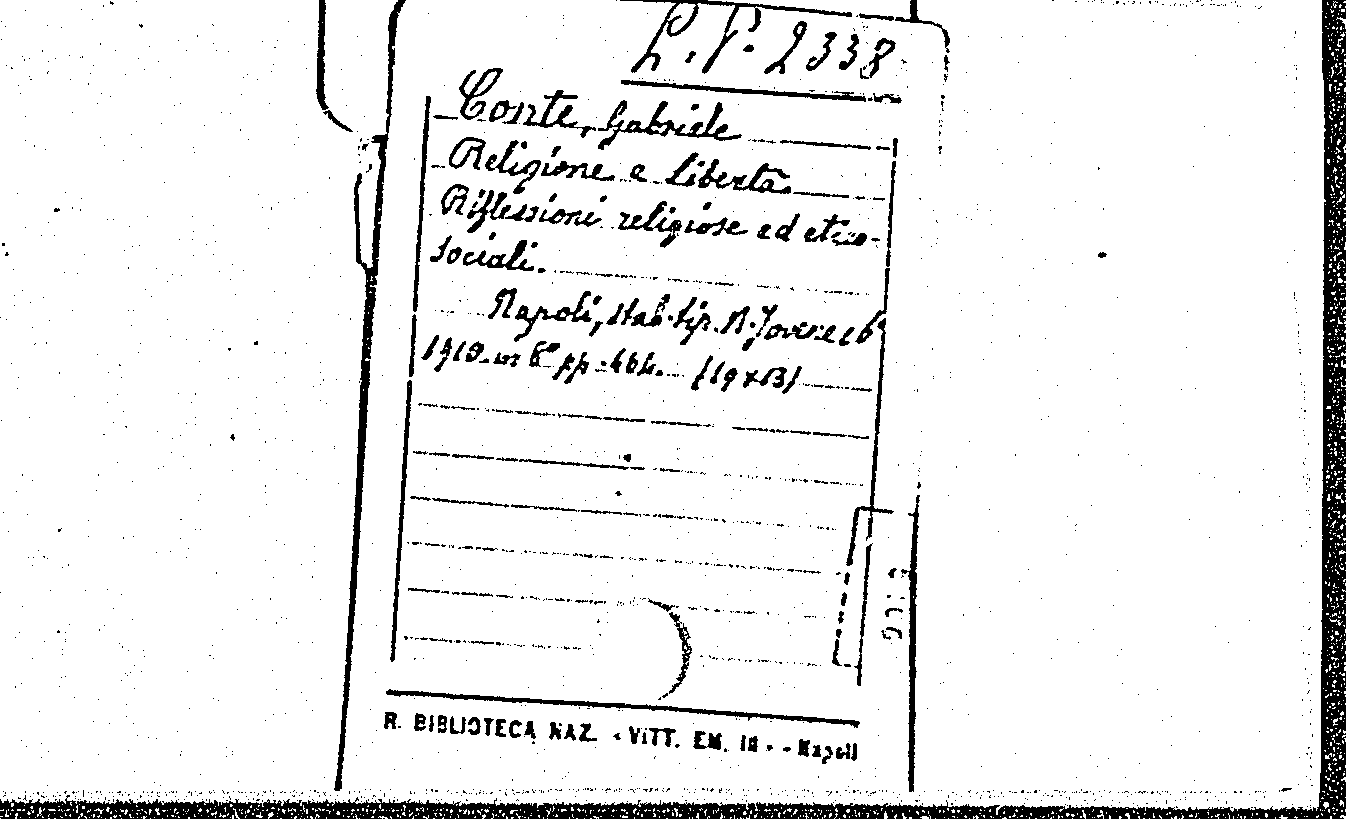 L. P. 2338
Conte, Gabriele
Religione e libertà.
Riflessioni religiose ed etico-
sociali.
Napoli, stab. tip. N. Jovene e Cº
1910 in 8º pp. 464. (19x13)
R. BIBLIOTECA NAZ. « VITT. EM. III » - Napoli